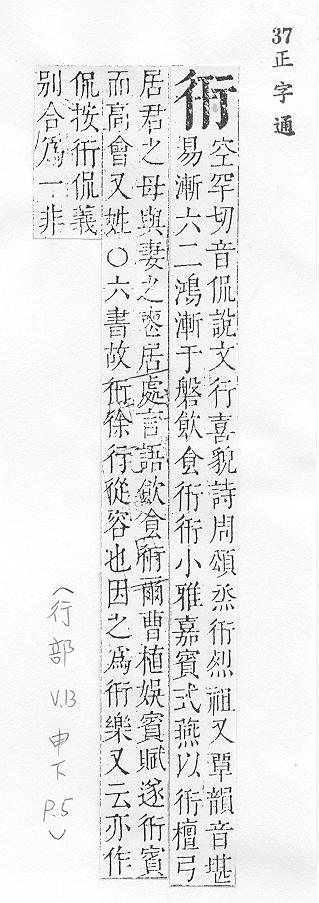 37正字通
衎
空罕切音侃說文行喜貌詩周頌烝衎烈祖又覃韻音堪
易漸六二鴻漸于磐飲食衎衎小雅嘉賓式燕以衎檀弓
居君之母與妻之喪居處言語飲食衎爾曹植娛賓賦遂衎賓
而高會又姓○六書故衎徐行從容也因之爲衎樂又云亦作
侃按衎侃義
别合爲一非
（行部 V.13 申下 P.5）